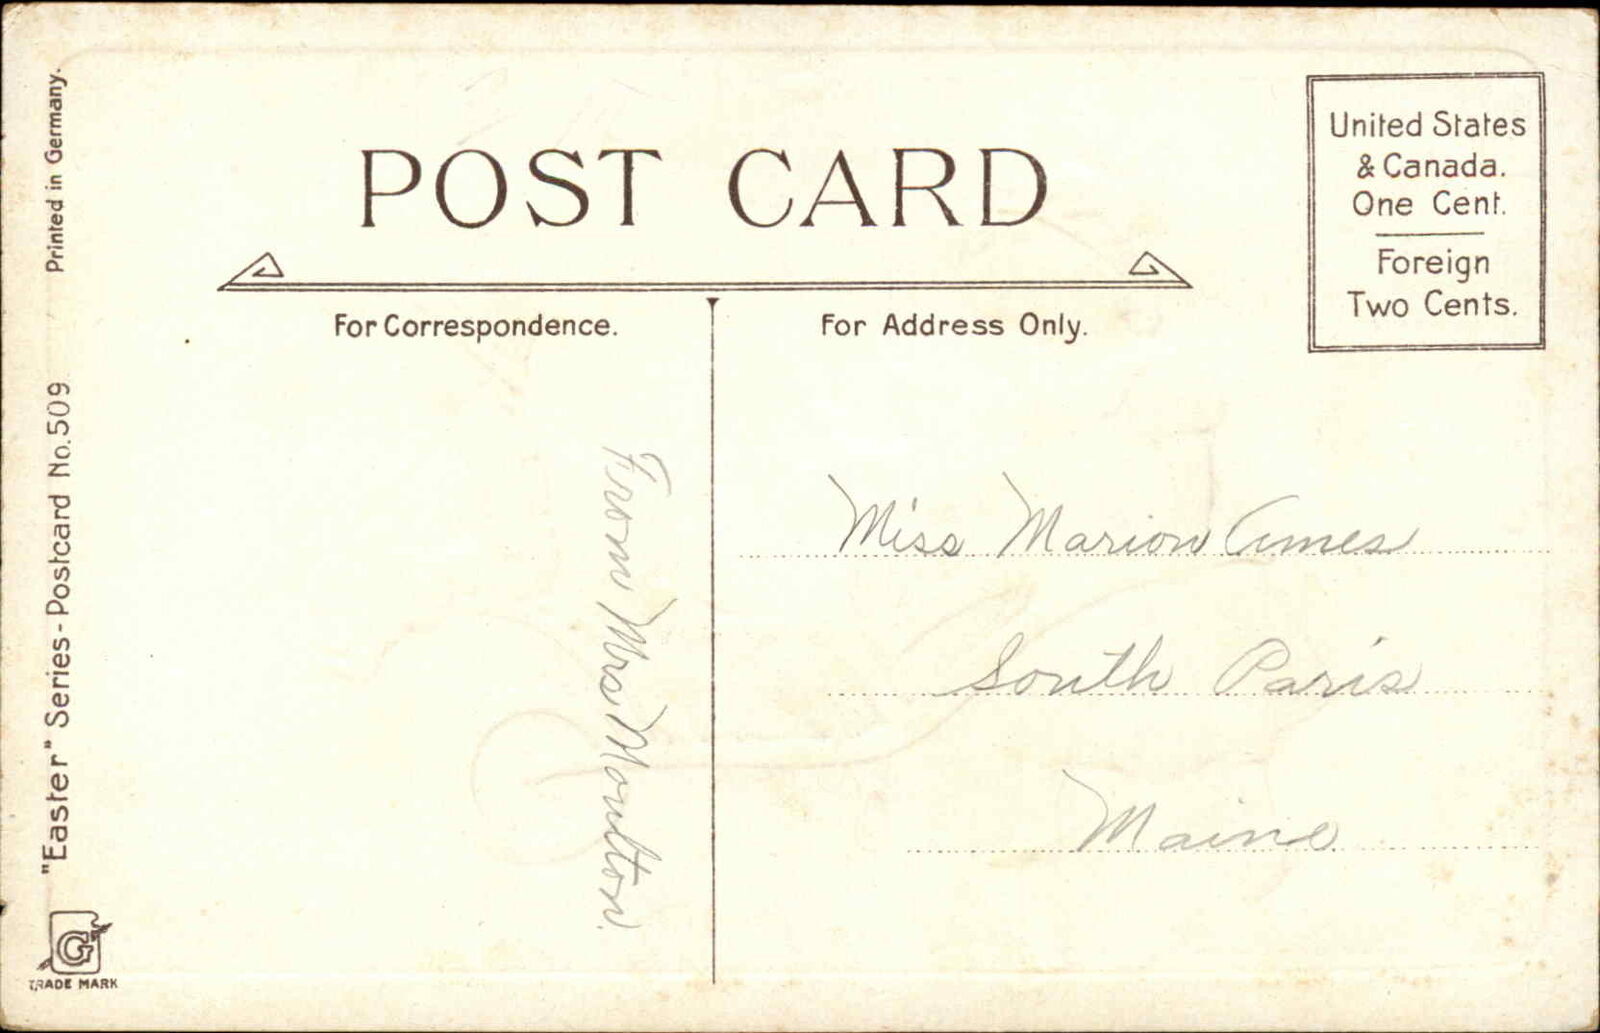 POST CARD
United States
& Canada.
One Cent.
Foreign
Two Cents.
For Correspondence.
For Address Only.
From Mrs Moulton.
Miss Marion Ames
South Paris
Maine
Printed in Germany.
"Easter" Series - Postcard No. 509
G
TRADE MARK